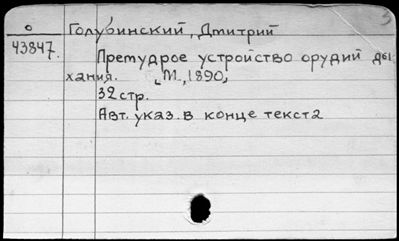 3
о Голубинский, Дмитрий
43847. Премудрое устройство орудий ды
хания. [М., 1890,
32 стр.
Авт. указ. в конце текста